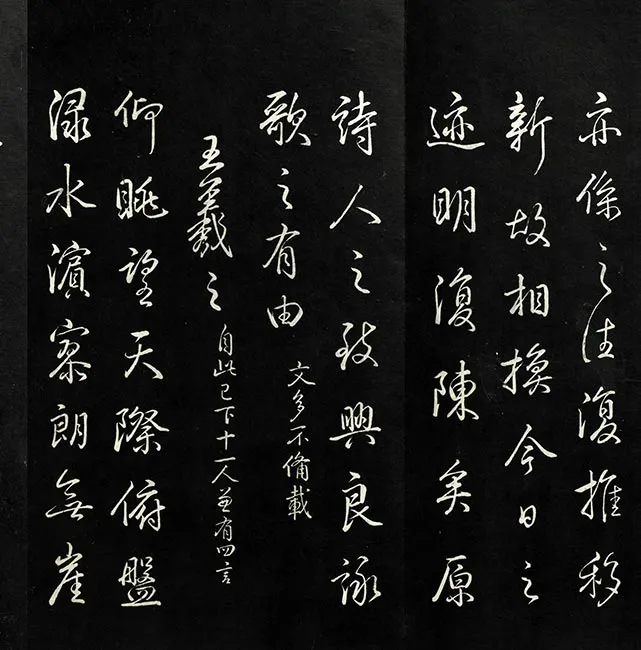 亦係之往復推移
新故相換今日之
迹明復陳矣原
詩人之致興良詠
歌之有由 文多不備載
王羲之 自此已下十一人並有四言
仰眺望天際俯盤
淥水濱寥朗無崖